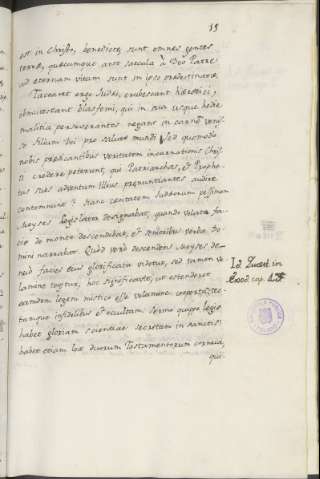 est in Christo, benedictę sunt omnes gentes
terræ, quæcumque ante sæcula à Deo Patre
ad æternam vitam sunt in ipso predestinatæ
Taceant ergo Iudæi, erubescant hæretici,
obmutescant blasfemi, qui in sua usque hodie
malitia perseverantes negant in carne venis-
se filium Dei pro salute mundi. Sed quomodo
nobis predicantibus veritatem incarnationis Chris
ti credere poterunt, qui Patriarchas, et Prophe-
tas suos adventum illius prenuntiantes audire
contemnunt? Hanc cæcitatem Iudæorum pessimam
Moyses legislator designabat, quando velata fa-
cie de monte descendebat, et senioribus verba Do-
mini narrabat. Quid vero descendens Moyses de-
nuo facies eius glorificata videtur, sed tamen ve
lamine tegitur, hoc significavit, ut ostenderet
eamdem legem mystico esse velamine coopertam,
tamque infidelibus et occultam. Sermo quippe legis
habet gloriam scientiæ secretam in
habet etiam lex duorum Testamentorum cornua,
qui
Id in
Exod. cap.